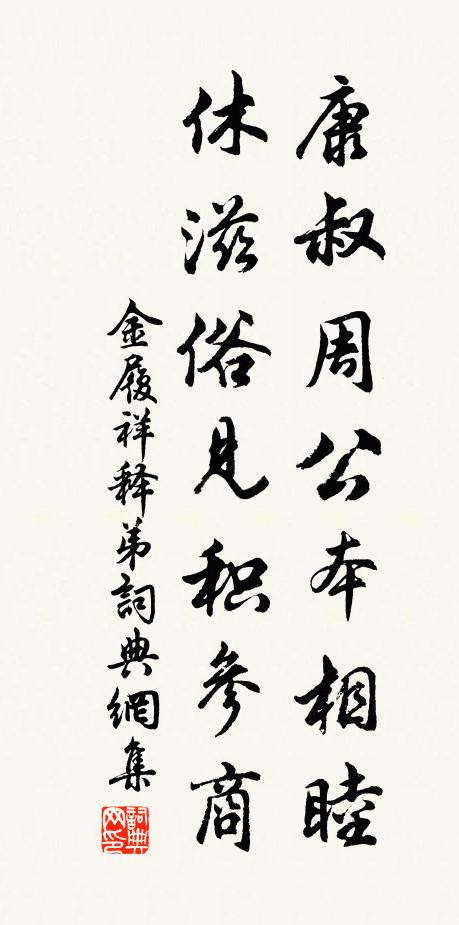 康叔周公本相睦
休滋俗见积参商
金履祥释弟詞典網集
詞典网印